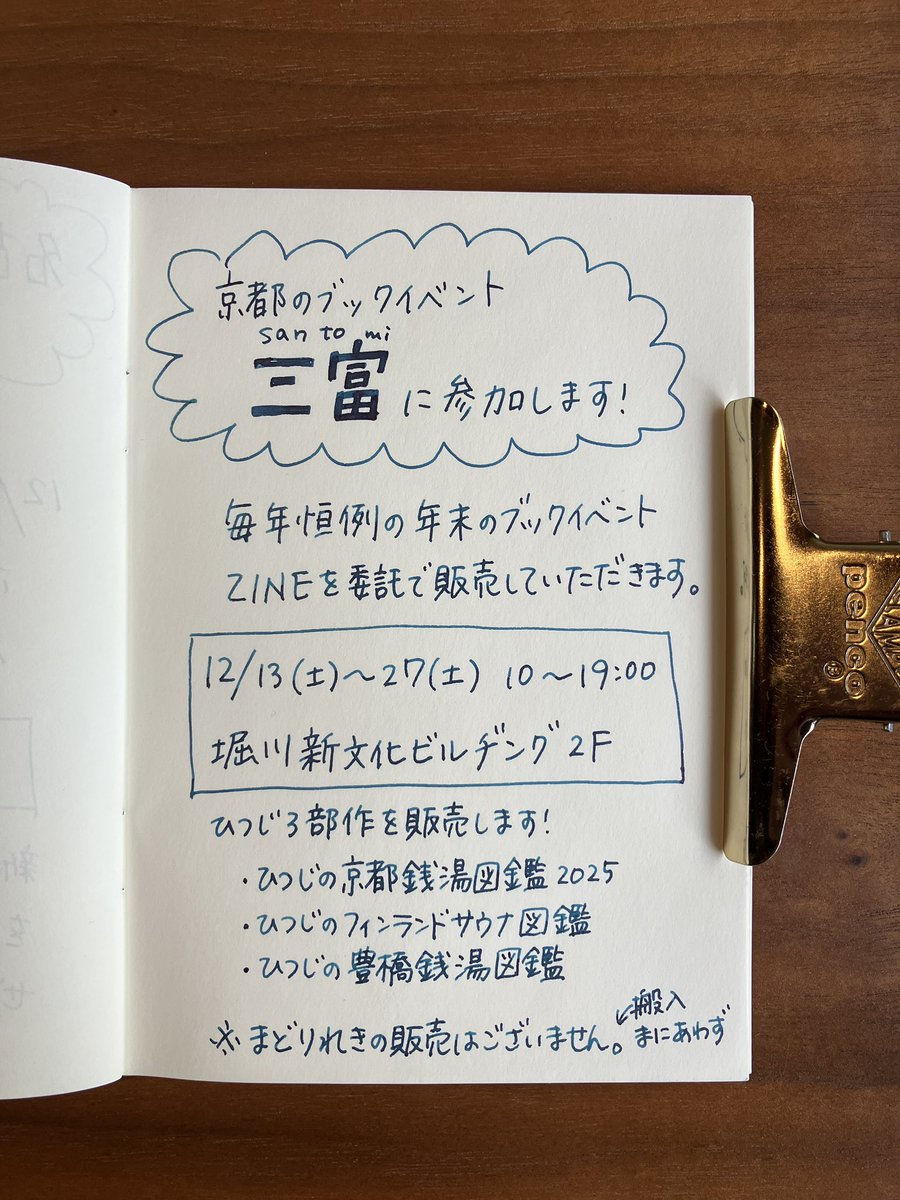 京都のブックイベント
san to mi
三富に参加します!
毎年恒例の年末のブックイベント
ZINEを委託で販売していただきます。
12/13(土)～27(土) 10～19:00
堀川新文化ビルヂング 2F
ひつじ3部作を販売します!
・ひつじの京都銭湯図鑑2025
・ひつじのフィンランドサウナ図鑑
・ひつじの豊橋銭湯図鑑
※まどりれきの販売はございません。
搬入
まにあわず
penco®
12/